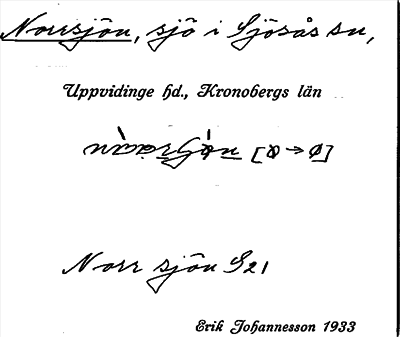 Norrsjön, sjö i Sjösås sn,
Uppvidinge hd., Kronobergs län
Norr sjön S21
Erik Johannesson 1933